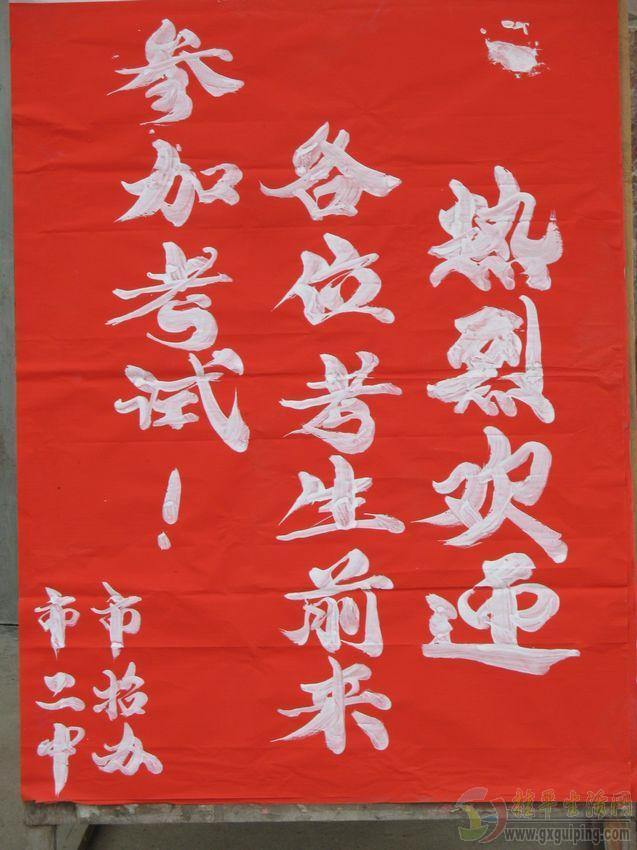 热烈欢迎
各位考生前来
参加考试！
市招办
市二中
桂平生活网
www.gxguiping.com